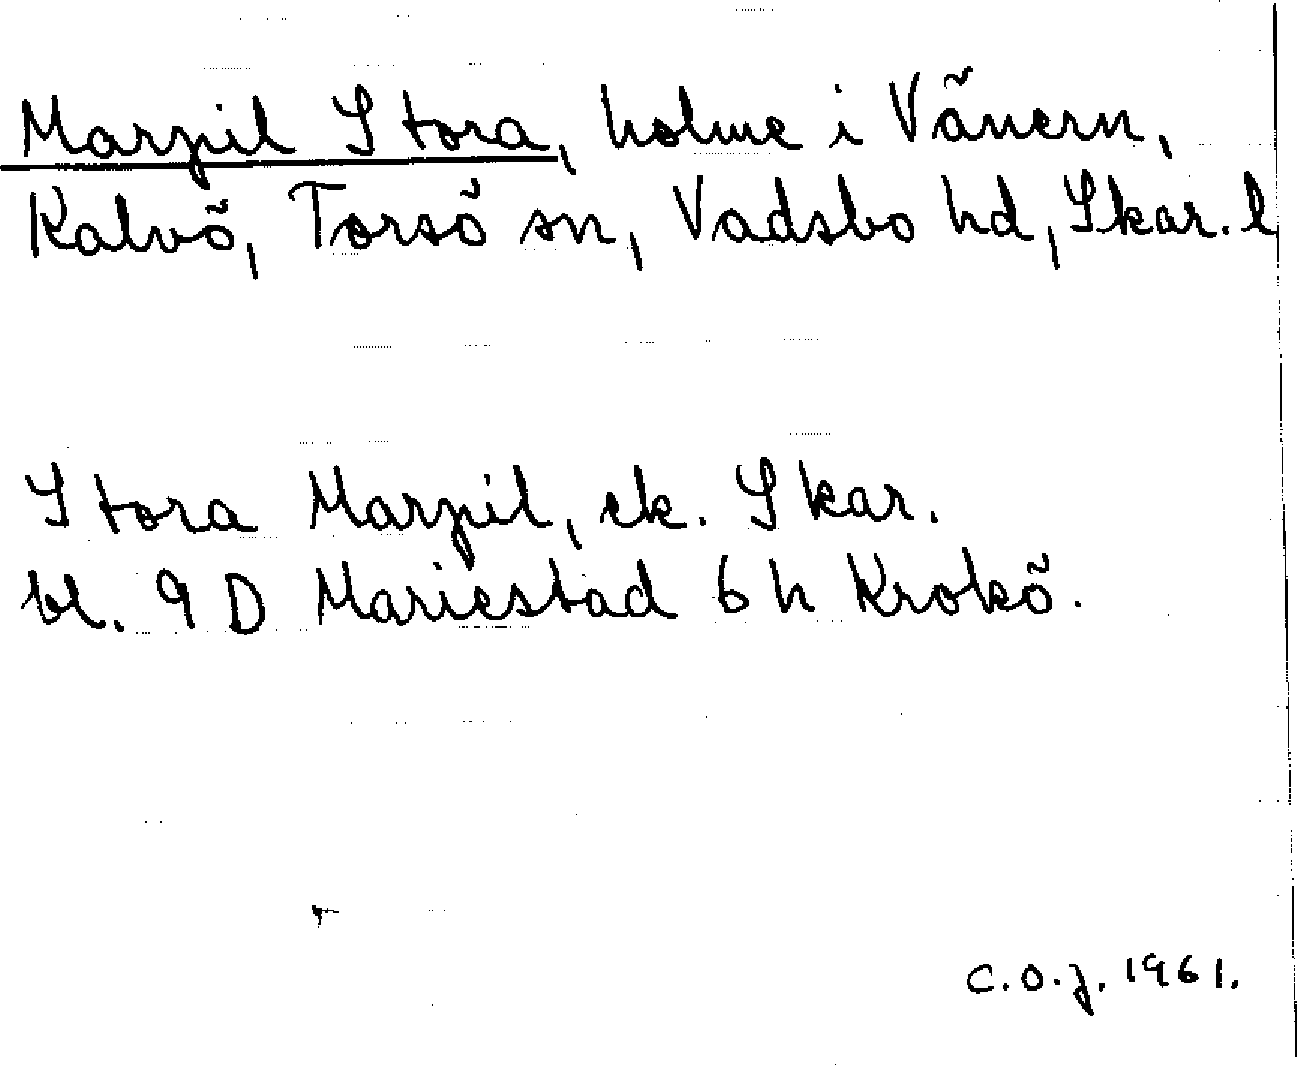 Marpil Stora, holme i Vänern,
Kalvö, Torsö sn, Vadsbo hd, Skar. l
Stora Marpil, ek. Skar.
bl. 9 D Mariestad 6 h Krokö.
C.O.J. 1961.